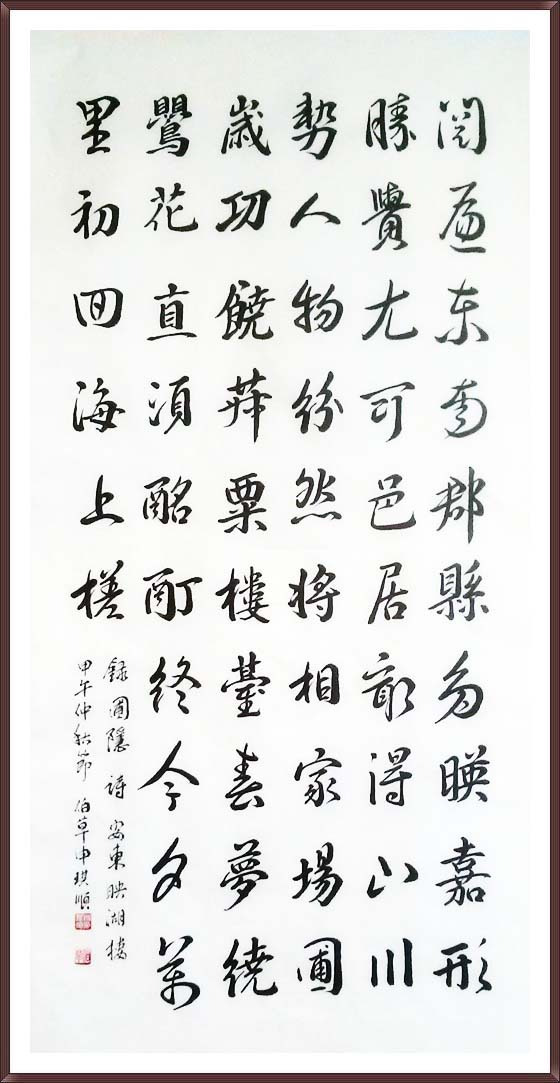 閱遍东南郡縣多暎嘉形
勝覺尤可邑居最得山川
勢人物紛然將相家場圃
歲功饒菽粟樓臺春夢繞
鶯花直須酩酊終今夕萬
里初回海上槎
錄圃隱詩 安東映湖樓
甲午仲秋節 伯草申琪順